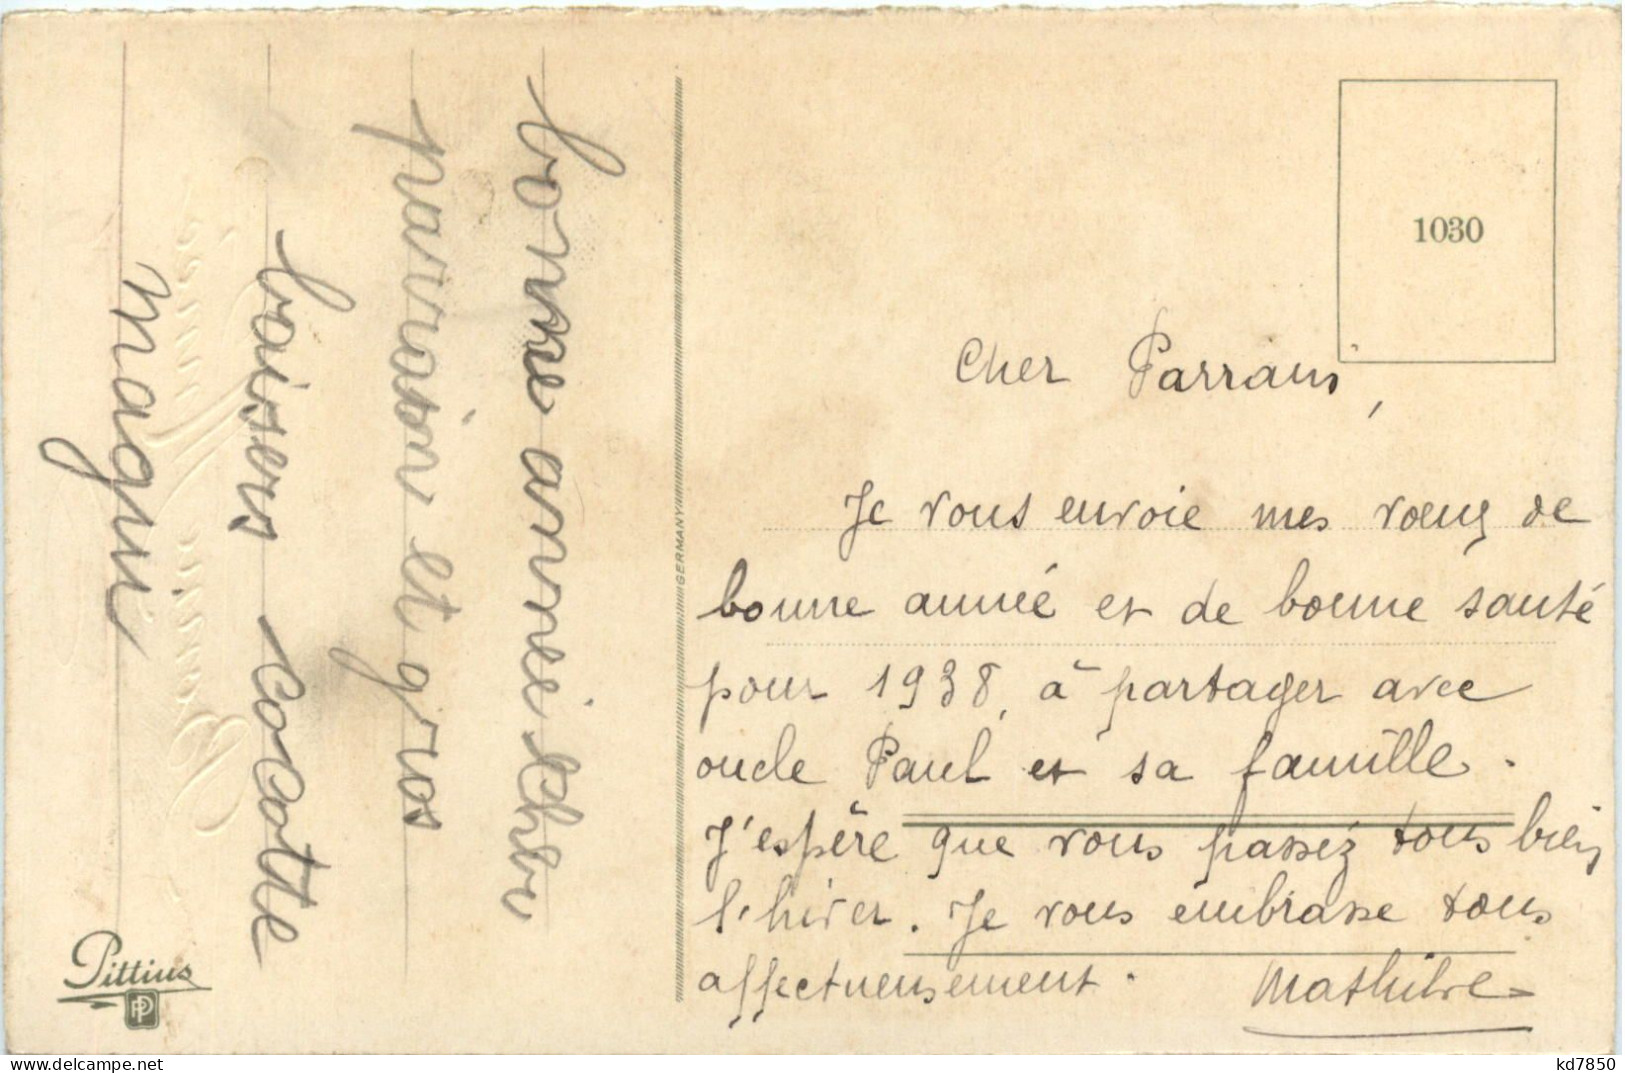 bonne année cher
parrain et gros
baisers Cocotte
Magui
Pittius
PP
GERMANY
1030
Cher Parrain,
Je vous envoie mes vœux de
bonne année et de bonne santé
pour 1938, à partager avec
oncle Paul et sa famille.
J'espère que vous passez tous bien
l'hiver. Je vous embrasse tous
affectueusement. Mathilde
delcampe.net
kd7850